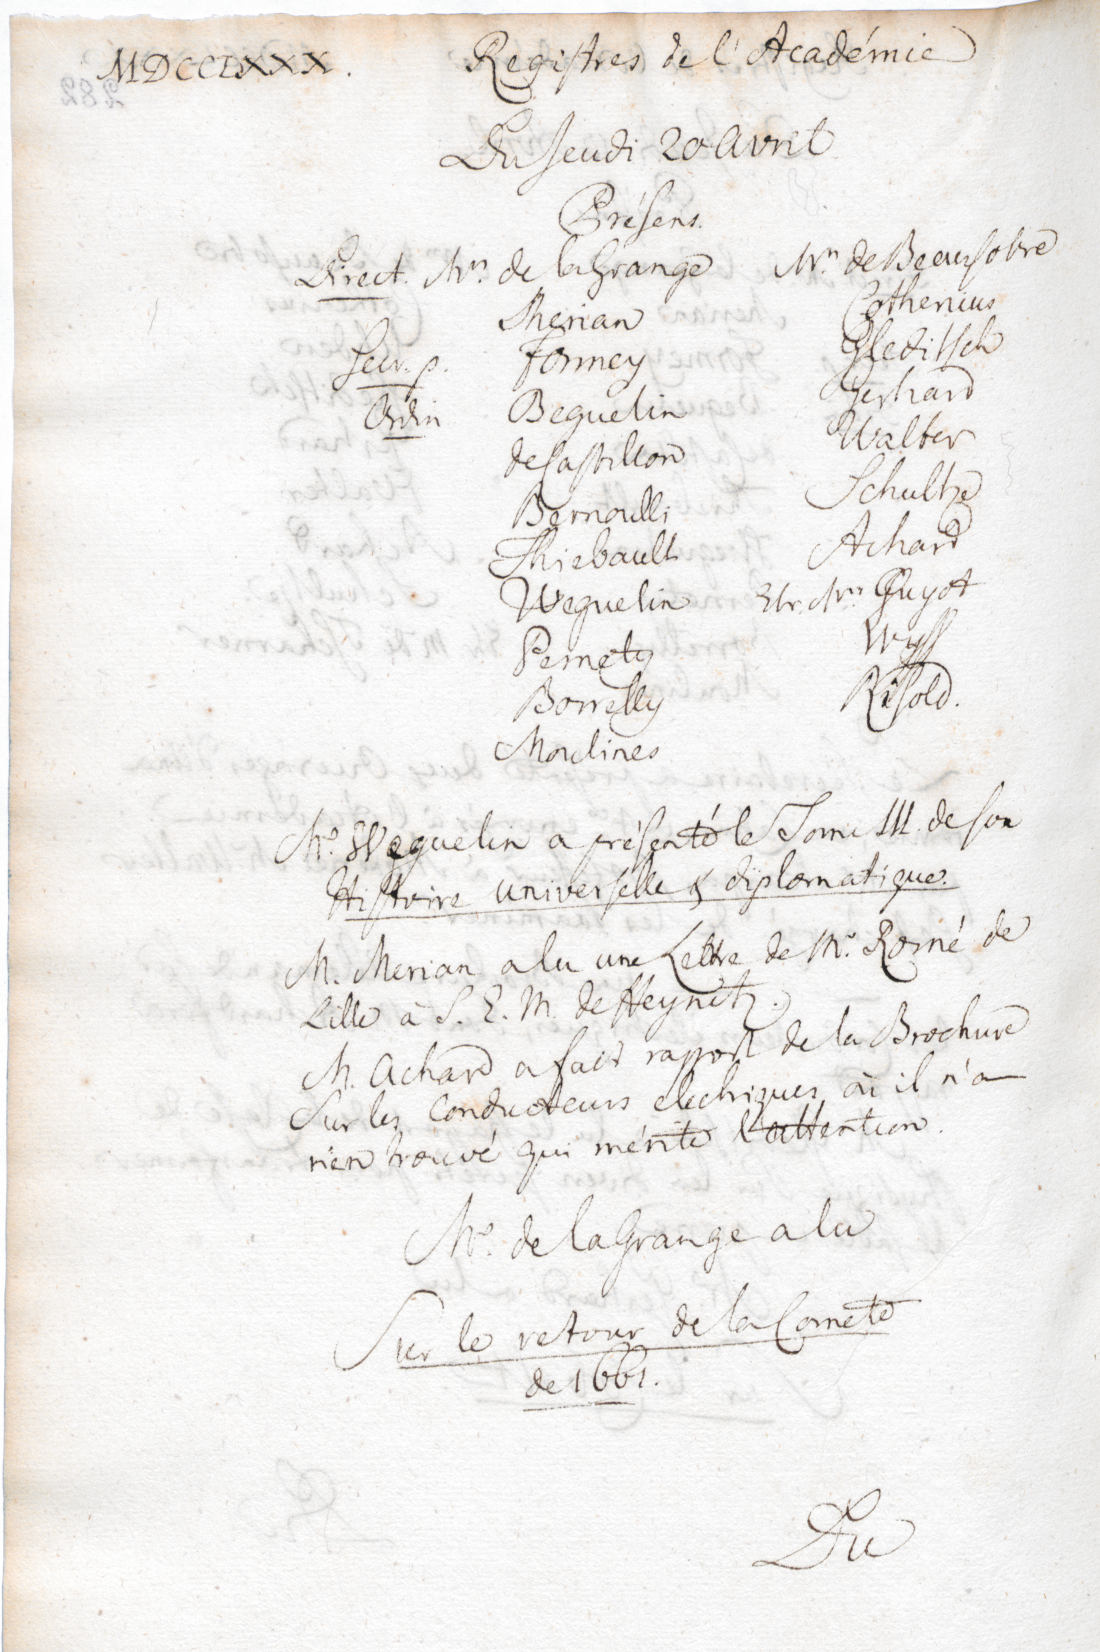 MDCCLXXX. Registres de l'Académie
Du Jeudi 20 Avril
Présens.
Direct. Mrs. de la Grange Mrs. de Beausobre
Merian Cothenius
Secr. p. Formey Gleditsch
Ordin Beguelin Gerhard
de Castillon Walter
Bernoulli Schultze
Thiebault Achard
Weguelin Etr. Mrs. Guyot
Pernety Wyss
Borrelly Risold.
Moulines
Mr. Weguelin a présenté le Tome III. de son
Histoire universelle & diplomatique.
M. Merian a lu une Lettre de Mr. Romé de
Lille à S. E. M. de Heynitz.
M. Achard a fait rapport de la Brochure
sur les Conducteurs electriques, où il n'a
rien trouvé qui mérite l'attention.
Mr. de la Grange a lu
Sur le retour de la Comete
de 1661.
Du